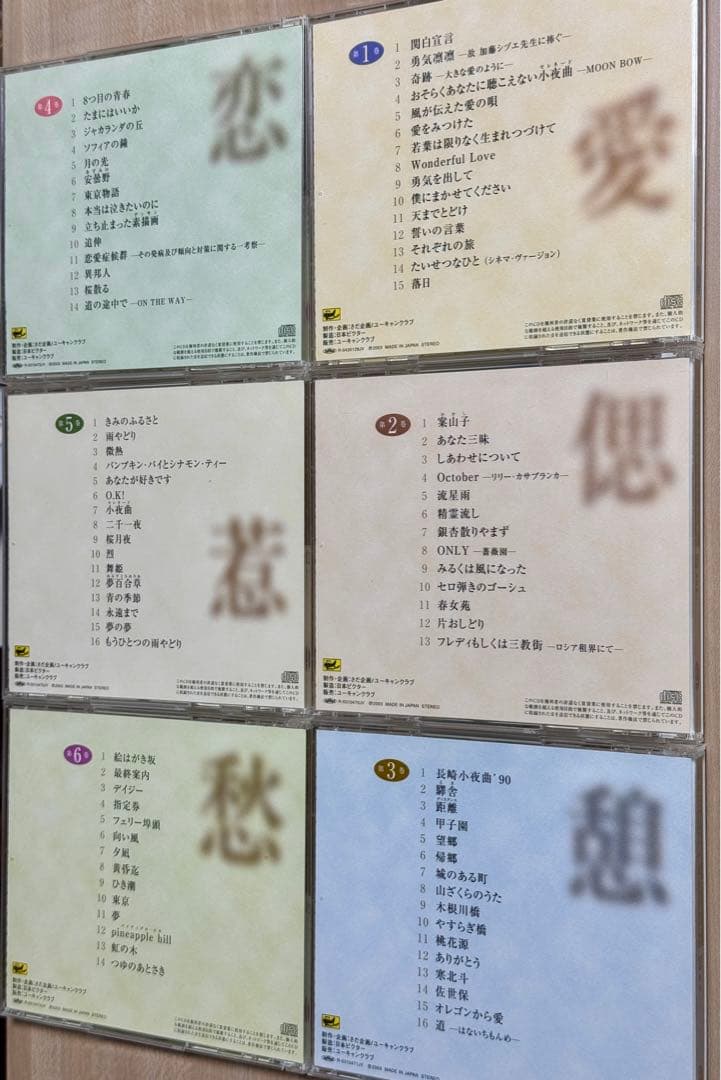 第4巻
恋
1 8つ目の青春
2 たまにはいいか
3 ジャカランダの丘
4 ソフィアの鐘
5 月の光
6 安曇野
7 東京物語
8 本当は泣きたいのに
9 立ち止まった素描画
10 追伸
11 恋愛症候群 —その発病及び傾向と対策に関する一考察—
12 異邦人
13 桜散る
14 道の途中で —ON THE WAY—
制作・企画:さだ企画/ユーキャンクラブ
製造:日本ビクター
販売:ユーキャンクラブ
第1巻
愛
1 関白宣言
2 勇気凛凛 —故 加藤シヅエ先生に捧ぐ—
3 奇跡 —大きな愛のように—
4 おそらくあなたに聴こえない小夜曲 —MOON BOW—
5 風が伝えた愛の唄
6 愛をみつけた
7 若葉は限りなく生まれつづけて
8 Wonderful Love
9 勇気を出して
10 僕にまかせてください
11 天までとどけ
12 誓いの言葉
13 それぞれの旅
14 たいせつなひと (シネマ・ヴァージョン)
15 落日
制作・企画:さだ企画/ユーキャンクラブ
製造:日本ビクター
販売:ユーキャンクラブ
第5巻
惹
1 きみのふるさと
2 雨やどり
3 微熱
4 パンプキン・パイとシナモン・ティー
5 あなたが好きです
6 O.K!
7 小夜曲
8 二千一夜
9 桜月夜
10 烈
11 舞姫
12 夢百合草
13 青の季節
14 永遠まで
15 夢の夢
16 もうひとつの雨やどり
制作・企画:さだ企画/ユーキャンクラブ
製造:日本ビクター
販売:ユーキャンクラブ
第2巻
偲
1 案山子
2 あなた三昧
3 しあわせについて
4 October —リリー・カサブランカ—
5 流星雨
6 精霊流し
7 銀杏散りやまず
8 ONLY —薔薇園—
9 みるくは風になった
10 セロ弾きのゴーシュ
11 春女苑
12 片おしどり
13 フレディもしくは三教街 —ロシア租界にて—
制作・企画:さだ企画/ユーキャンクラブ
製造:日本ビクター
販売:ユーキャンクラブ
第6巻
愁
1 絵はがき坂
2 最終案内
3 デイジー
4 指定券
5 フェリー埠頭
6 向い風
7 夕凪
8 黄昏迄
9 ひき潮
10 東京
11 夢
12 pineapple hill
13 虹の木
14 つゆのあとさき
制作・企画:さだ企画/ユーキャンクラブ
製造:日本ビクター
販売:ユーキャンクラブ
第3巻
憩
1 長崎小夜曲'90
2 驛舎
3 距離
4 甲子園
5 望郷
6 帰郷
7 城のある町
8 山ざくらのうた
9 木根川橋
10 やすらぎ橋
11 桃花源
12 ありがとう
13 寒北斗
14 佐世保
15 オレゴンから愛
16 道 —はないちもんめ—
制作・企画:さだ企画/ユーキャンクラブ
製造:日本ビクター
販売:ユーキャンクラブ